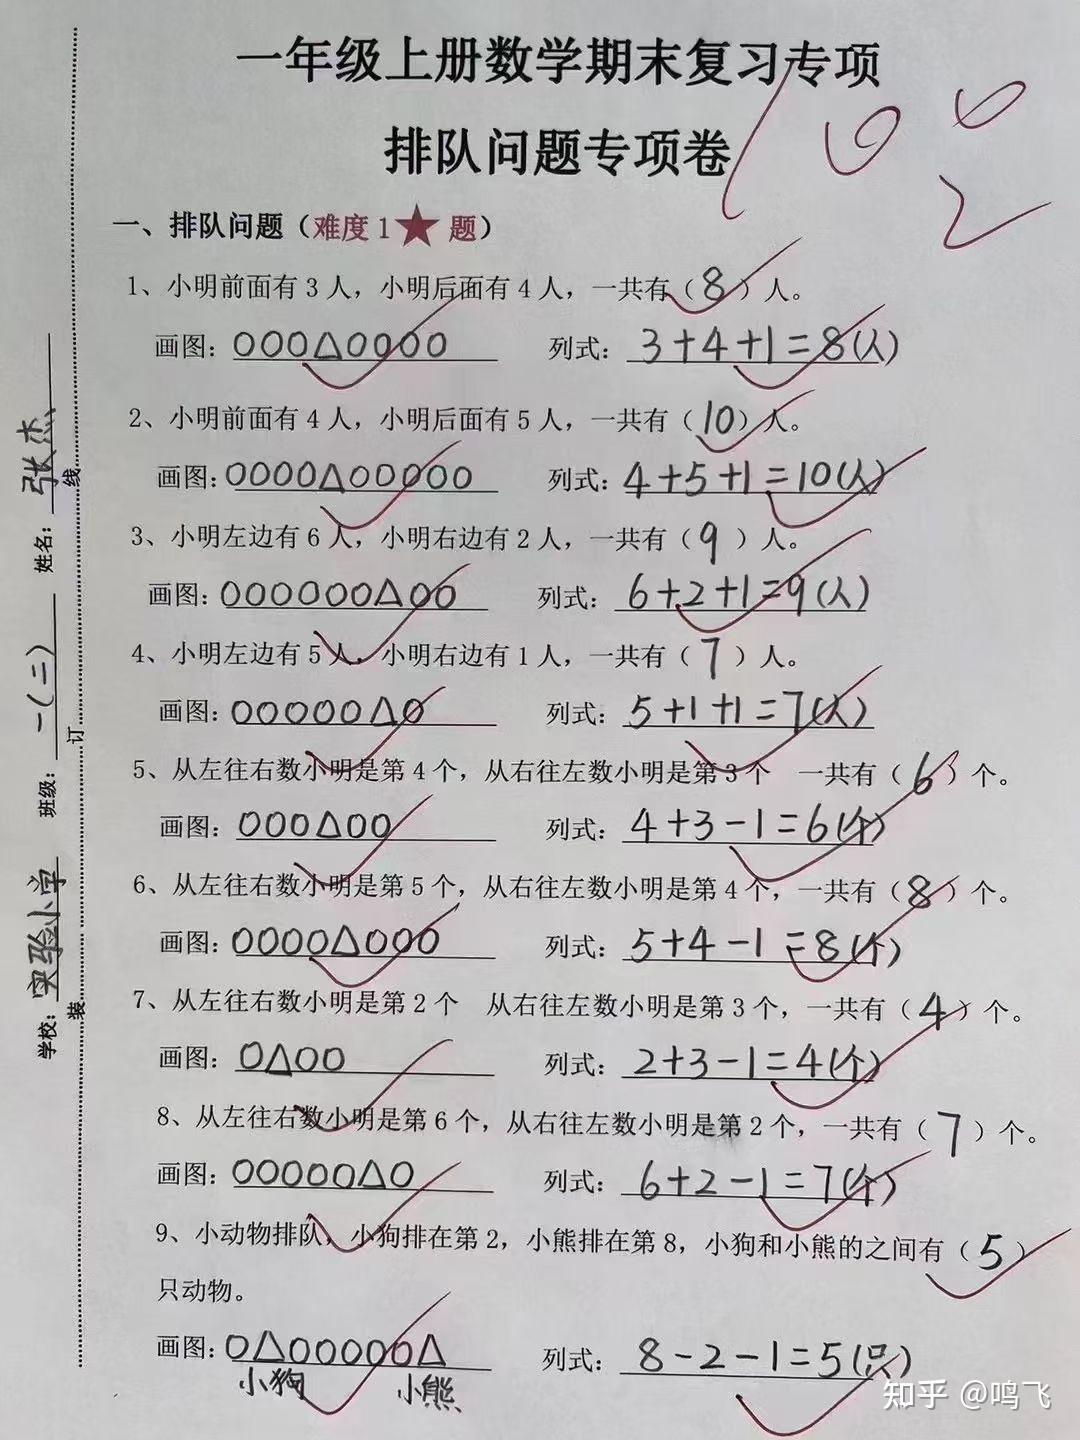 一年级上册数学期末复习专项
排队问题专项卷
100
一、排队问题（难度1★题）
1、小明前面有3人，小明后面有4人，一共有（8）人。
画图：OOO△OOOO 列式：3+4+1=8(人)
2、小明前面有4人，小明后面有5人，一共有（10）人。
画图：OOOO△OOOOO 列式：4+5+1=10(人)
3、小明左边有6人，小明右边有2人，一共有（9）人。
画图：OOOOOO△OO 列式：6+2+1=9(人)
4、小明左边有5人，小明右边有1人，一共有（7）人。
画图：OOOOO△O 列式：5+1+1=7(人)
5、从左往右数小明是第4个，从右往左数小明是第3个 一共有（6）个。
画图：OOO△OO 列式：4+3-1=6(个)
6、从左往右数小明是第5个，从右往左数小明是第4个，一共有（8）个。
画图：OOOO△OOO 列式：5+4-1=8(个)
7、从左往右数小明是第2个 从右往左数小明是第3个，一共有（4）个。
画图：O△OO 列式：2+3-1=4(个)
8、从左往右数小明是第6个，从右往左数小明是第2个，一共有（7）个。
画图：OOOOO△O 列式：6+2-1=7(个)
9、小动物排队，小狗排在第2，小熊排在第8，小狗和小熊的之间有（5）
只动物。
画图：O△OOOOO△ 列式：8-2-1=5(只)
小狗 小熊
学校：实验小学 班级：一(二) 姓名：张杰
装 订 线
知乎 @鸣飞